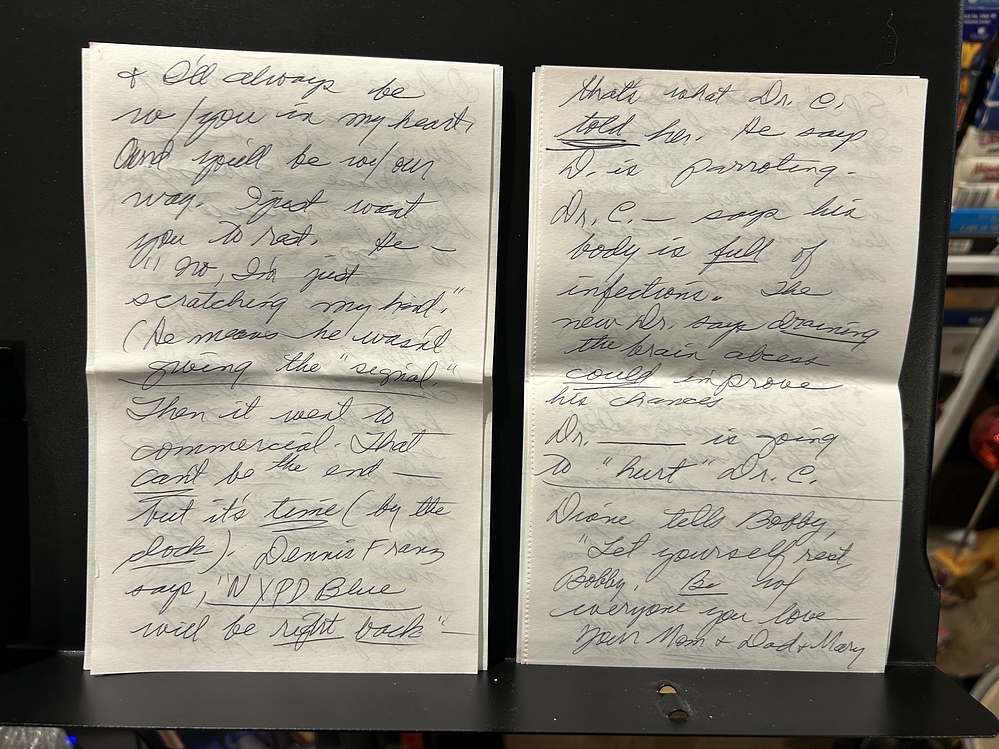 & I'd always be
w/you in my heart,
And you'll be w/our
way. I just want
you to rest. He —
"No, I'm just
scratching my hand."
(He means he wasn't
giving the "signal."
Then it went to
commercial. That
can't be the end —
but it's time (by the
clock). Dennis Franz
says, 'NYPD Blue
will be right back" —
that's what Dr. C.
told her. He say
D. is parroting.
Dr. C. — says his
body is full of
infections. The
new Dr. says draining
the brain abcess
could improve
his chances
Dr. ______ is going
to "hurt" Dr. C.
Diane tells Bobby,
"Let yourself rest
Bobby. Be w/
everyone you love
Your Mom & Dad & Mary